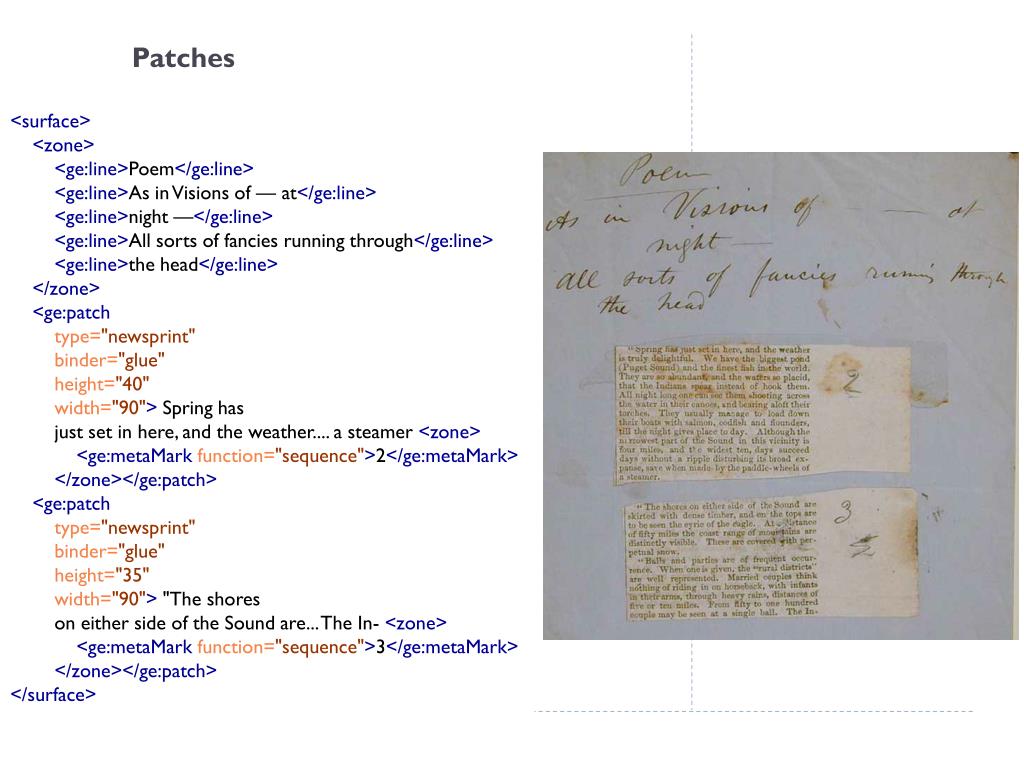 Patches
<surface>
<zone>
<ge:line>Poem</ge:line>
<ge:line>As in Visions of — at</ge:line>
<ge:line>night —</ge:line>
<ge:line>All sorts of fancies running through</ge:line>
<ge:line>the head</ge:line>
</zone>
<ge:patch
type="newsprint"
binder="glue"
height="40"
width="90"> Spring has
just set in here, and the weather.... a steamer <zone>
<ge:metaMark function="sequence">2</ge:metaMark>
</zone></ge:patch>
<ge:patch
type="newsprint"
binder="glue"
height="35"
width="90"> "The shores
on either side of the Sound are... The In- <zone>
<ge:metaMark function="sequence">3</ge:metaMark>
</zone></ge:patch>
</surface>
Poem
As in Visions of — — at
night —
All sorts of fancies running through
the head
"Spring has just set in here, and the weather
is truly delightful. We have the biggest pond
(Puget Sound) and the finest fish in the world.
They are so abundant, and the waters so placid,
that the Indians spear instead of hook them.
All night long one can see them shooting across
the water in their canoes, and bearing aloft their
torches. They usually manage to load down
their boats with salmon, codfish and flounders,
till the night gives place to day. Although the
narrowest part of the Sound in this vicinity is
four miles, and the widest ten, days succeed
days without a ripple disturbing its broad ex-
panse, save when made by the paddle-wheels of
a steamer.
2
"The shores on either side of the Sound are
skirted with dense timber, and on the tops are
to be seen the eyrie of the eagle. At distance
of fifty miles the coast range of mountains are
distinctly visible. These are covered with per-
petual snow.
"Balls and parties are of frequent occur-
rence. When one is given, the "rural districts"
are well represented. Married couples think
nothing of riding in on horseback, with infants
in their arms, through heavy rains, distances of
five or ten miles. From fifty to one hundred
couple may be seen at a single ball. The In-
3